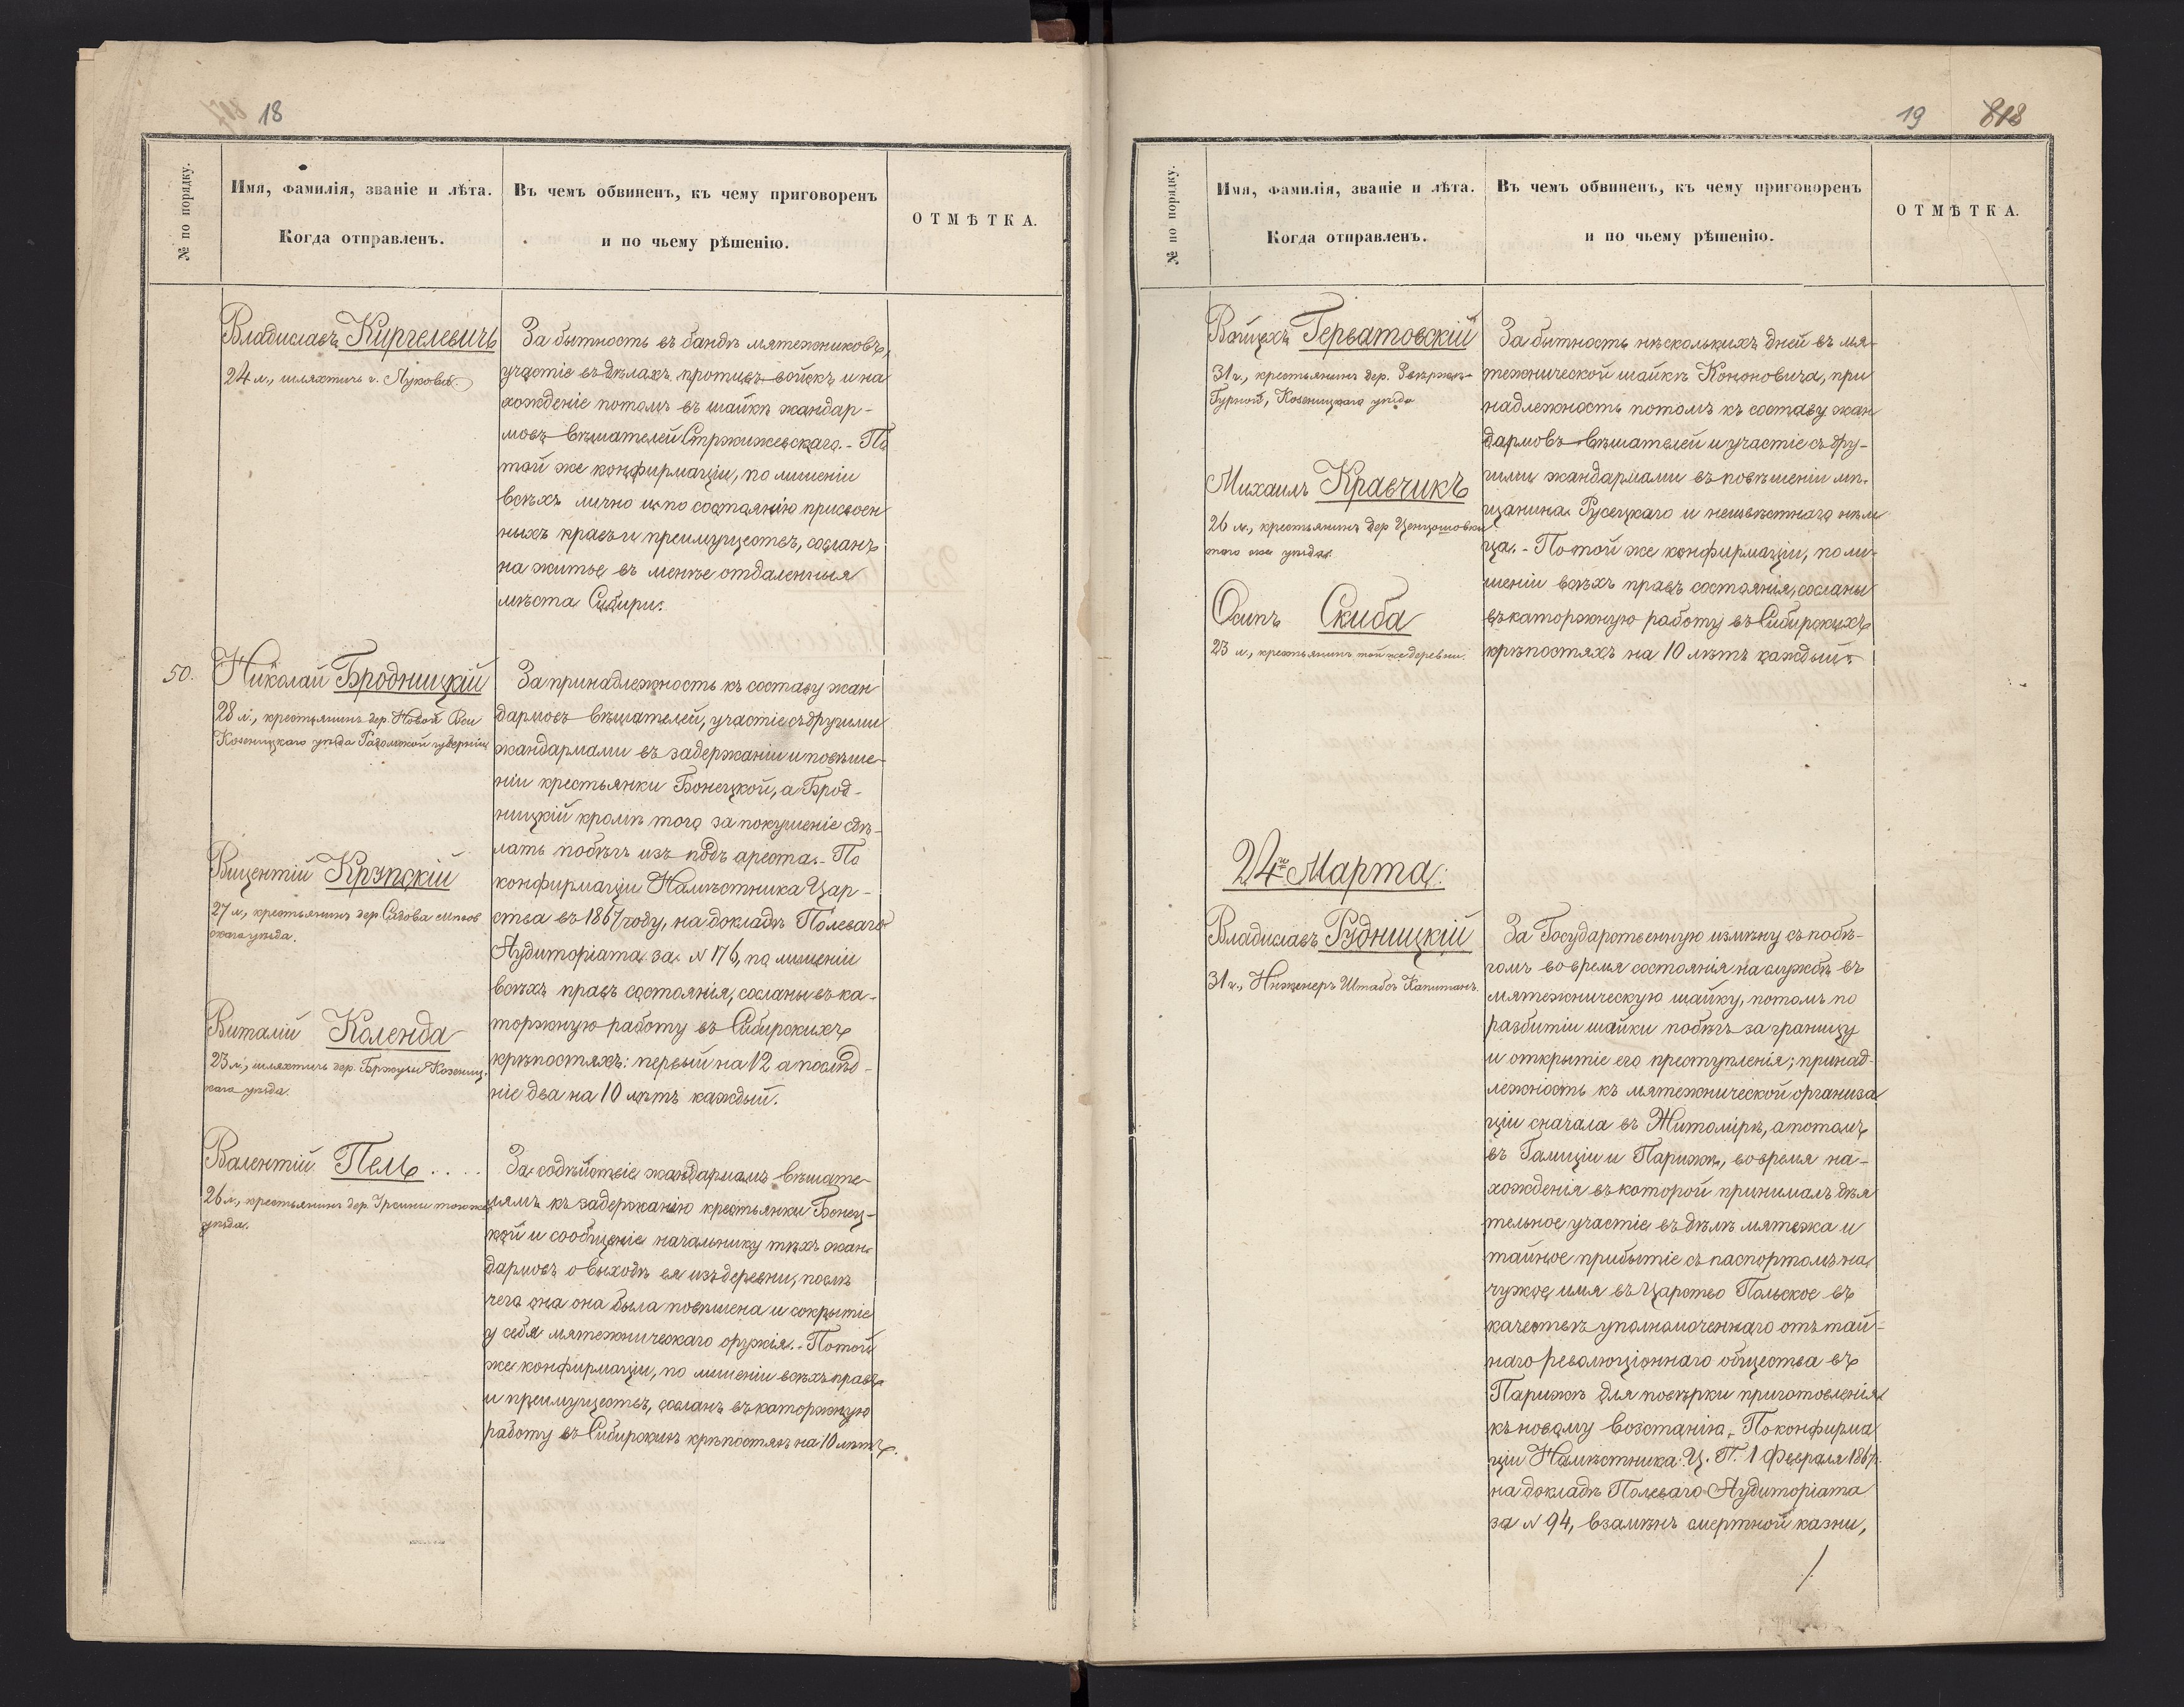 18
№ по порядку.
Имя, фамилія, званіе и лѣта.
Когда отправленъ.
Въ чемъ обвиненъ, къ чему приговоренъ
и по чьему рѣшенію.
ОТМѢТКА.
Владиславъ Киргелевичъ
24 л., шляхтичъ г. Лукова.
За бытность въ бандѣ мятежниковъ,
участіе въ дѣлахъ противъ войскъ и на
хожденіе потомъ въ шайкѣ жандар-
мовъ вѣшателей Стржижевскаго. - По
той же конфирмаціи, по лишеніи
всѣхъ лично и по состоянію присвоен
ныхъ правъ и преимуществъ, сосланъ
на житье въ менѣе отдаленныя
мѣста Сибири.
50. Николай Бродницкій
28 л., крестьянинъ дер. Новой Вси
Козеницкаго уѣзда Радомской губерніи
Вицентій Крэпскій
27 л., крестьянинъ дер.
скаго уѣзда.
Виталій Коленда
23 л., шляхтичъ дер. Бржузы Козениц.
каго уѣзда.
За принадлежность къ составу жан
дармовъ вѣшателей, участіе съ другими
жандармами въ задержаніи и повѣше-
ніи крестьянки Бонецкой, а Брод-
ницкій кромѣ того за покушеніе сдѣ-
лать побѣгъ изъ подъ ареста. - По
конфирмаціи Намѣстника Цар-
ства въ 1867 году, на докладѣ Полеваго
Аудиторіата за N 176, по лишеніи
всѣхъ правъ состоянія, сосланы въ ка-
торжную работу въ Сибирскихъ
крѣпостяхъ: первый на 12 а послѣд-
ніе два на 10 лѣтъ каждый.
Валентій Пель....
26 л., крестьянинъ дер. тогоже
уѣзда.
За содѣйствіе жандармамъ вѣшате-
лямъ къ задержанію крестьянки Бонец-
кой и сообщеніе начальнику тѣхъ жан-
дармовъ о выходѣ ея изъ деревни, послѣ
чего она она была повѣшена и сокрытіе
у себя мятежническаго оружія. - По той
же конфирмаціи, по лишеніи всѣхъ правъ
и преимуществъ, сосланъ въ каторжную
работу въ Сибирскихъ крѣпостяхъ на 10 лѣтъ.
19 818
№ по порядку.
Имя, фамилія, званіе и лѣта.
Когда отправленъ.
Въ чемъ обвиненъ, къ чему приговоренъ
и по чьему рѣшенію.
ОТМѢТКА.
Войцехъ Герватовскій
31 г., крестьянинъ дер.
Гурной, Козеницкаго уѣзда
Михаилъ Кравчикъ
26 л., крестьянинъ дер
того же уѣзда.
Осипъ Скиба
23 л., крестьянинъ той же деревни.
За бытность нѣсколькихъ дней въ мя-
тежнической шайкѣ Кононовича, при
надлежность потомъ къ составу жан
дармовъ-вѣшателей и участіе съ дру-
гими жандармами въ повѣшеніи мѣ-
щанина Русецкаго и неизвѣстнаго нѣм
ца. - По той же конфирмаціи, по ли-
шеніи всѣхъ правъ состоянія, сосланы
въ каторжную работу въ Сибирскихъ
крѣпостяхъ на 10 лѣтъ каждый.
24го Марта.
Владиславъ Рудницкій
31 г., Инженеръ Штабсъ Капитанъ.
За Государственную измѣну съ побѣ-
гомъ во время состоянія на службѣ въ
мятежническую шайку, потомъ по
разбитіи шайки побѣгъ за границу
и открытіе его преступленія; принад-
лежность къ мятежнической организа
ціи сначала въ Житомірѣ, а потомъ
въ Галиціи и Парижѣ, во время на-
хожденія въ которой принималъ дѣя
тельное участіе въ дѣлѣ мятежа и
тайное прибытіе съ паспортомъ на
чужое имя въ Царство Польское въ
качествѣ уполномоченнаго отъ тай-
наго революціоннаго общества въ
Парижѣ для повѣрки приготовленія
къ новому возстанію. По конфирма
ціи Намѣстника Ц. П. 1 Февраля 1867 г.
на докладѣ Полеваго Аудиторіата
за N 94, взамѣнъ смертной казни,